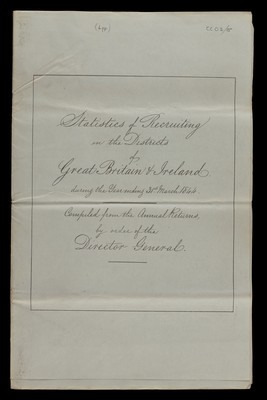 (App)
Statistics of Recruiting
in the Districts
of
Great Britain & Ireland
during the Year ending 31st March 1864.
Compiled from the Annual Returns,
by order of the
Director General.